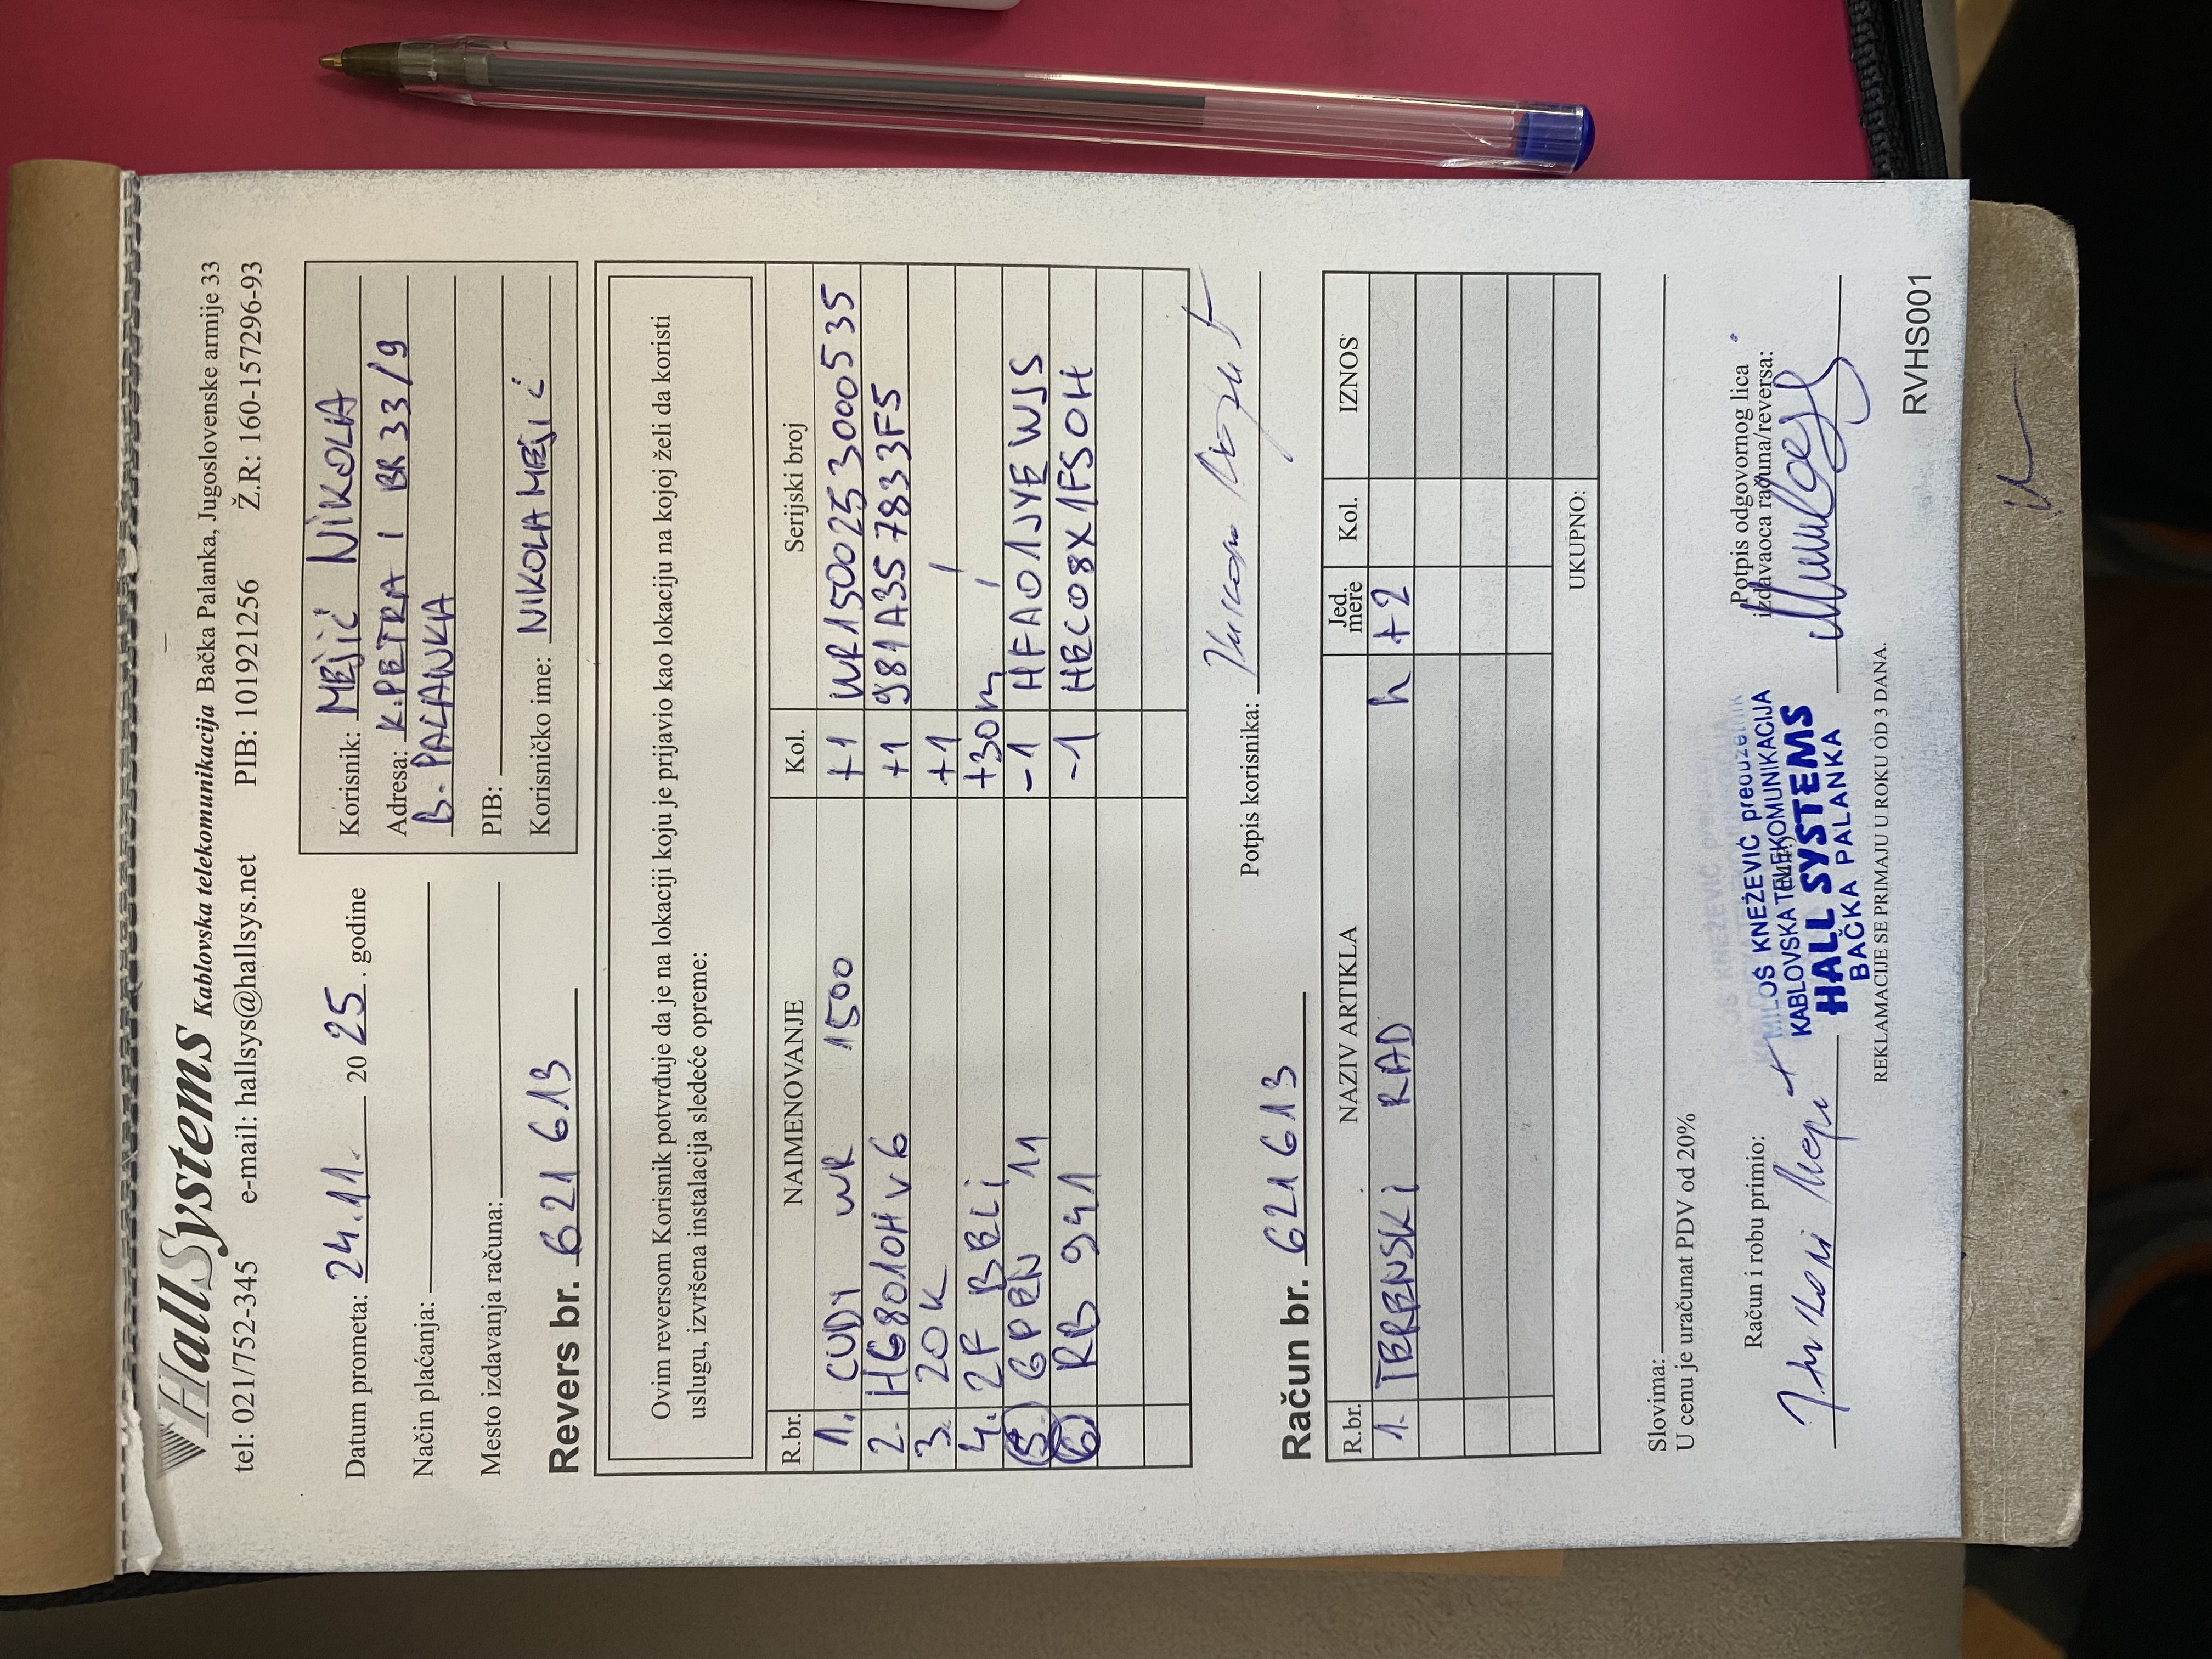 HallSystems Kablovska telekomunikacija Bačka Palanka, Jugoslovenske armije 33
tel: 021/752-345 e-mail: hallsys@hallsys.net PIB: 101921256 Ž.R: 160-157296-93
Datum prometa: 24.11. 2025. godine
Način plaćanja:
Mesto izdavanja računa:
Korisnik: MEJIĆ NIKOLA
Adresa: K.PETRA I BR 33/9
B. PALANKA
PIB:
Korisničko ime: NIKOLAMEJIĆ
Revers br. 621613
Ovim reversom Korisnik potvrđuje da je na lokaciji koju je prijavio kao lokaciju na kojoj želi da koristi
uslugu, izvršena instalacija sledeće opreme:
R.br. NAIMENOVANJE Kol. Serijski broj
1. CUDY WR 1500 +1 WR1500253000535
2. HG8010H v6 +1 981A357833F5
3. 20K +1 /
4. 2F BELI +30m /
5. GPEN 11 -1 HFA01JYEWJS
6. RB 941 -1 HEC08X1FSOH
Potpis korisnika:
Račun br. 621613
R.br. NAZIV ARTIKLA Jed. mere Kol. IZNOS
1. TERENSKI RAD h +2
UKUPNO:
Slovima:
U cenu je uračunat PDV od 20%
Račun i robu primio:
MILOŠ KNEŽEVIĆ preduzetnik
KABLOVSKA TELEKOMUNIKACIJA
HALL SYSTEMS
BAČKA PALANKA
Potpis odgovornog lica
izdavaoca računa/reversa:
REKLAMACIJE SE PRIMAJU U ROKU OD 3 DANA.
RVHS001